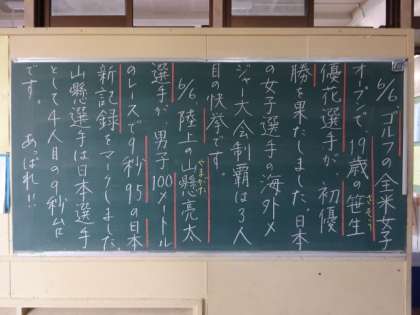 6/6、ゴルフの全米女子
オープンで、19歳の笹生
優花選手が、初優
勝を果たしました。日本
の女子選手の海外メ
ジャー大会制覇は3人
目の快挙です。
6/6、陸上の山縣亮太
選手が、男子100メートル
のレースで9秒95の日本
新記録をマークしました。
山縣選手は日本選手
として4人目の9秒台
です。 あっぱれ!!
さそう
やまがた